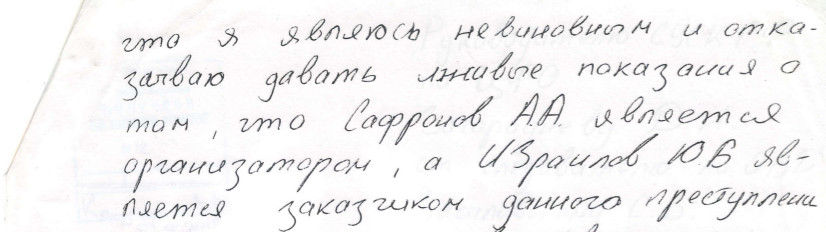 что я являюсь невиновным и отка-
зываю давать лживые показания о
том, что Сафронов А.А. является
организатором, а Израилов Ю.Б яв-
ляется заказчиком данного преступлени